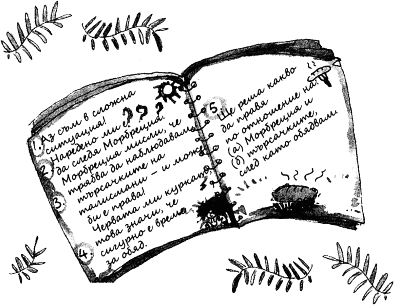 1. Аз съм в сложна
ситуация!
Наредено ми е
да следя Морбреция.
2. Морбреция мисли, че
трябва да наблюдаваме
търсачките на
талисмани – и може
би е права!
3. Червата ми куркат,
това значи, че
4. сигурно е време
за обяд.
???
5. Ще реша какво
да правя
по отношение на:
(а) Морбреция и
(б) търсачките,
след като обядвам